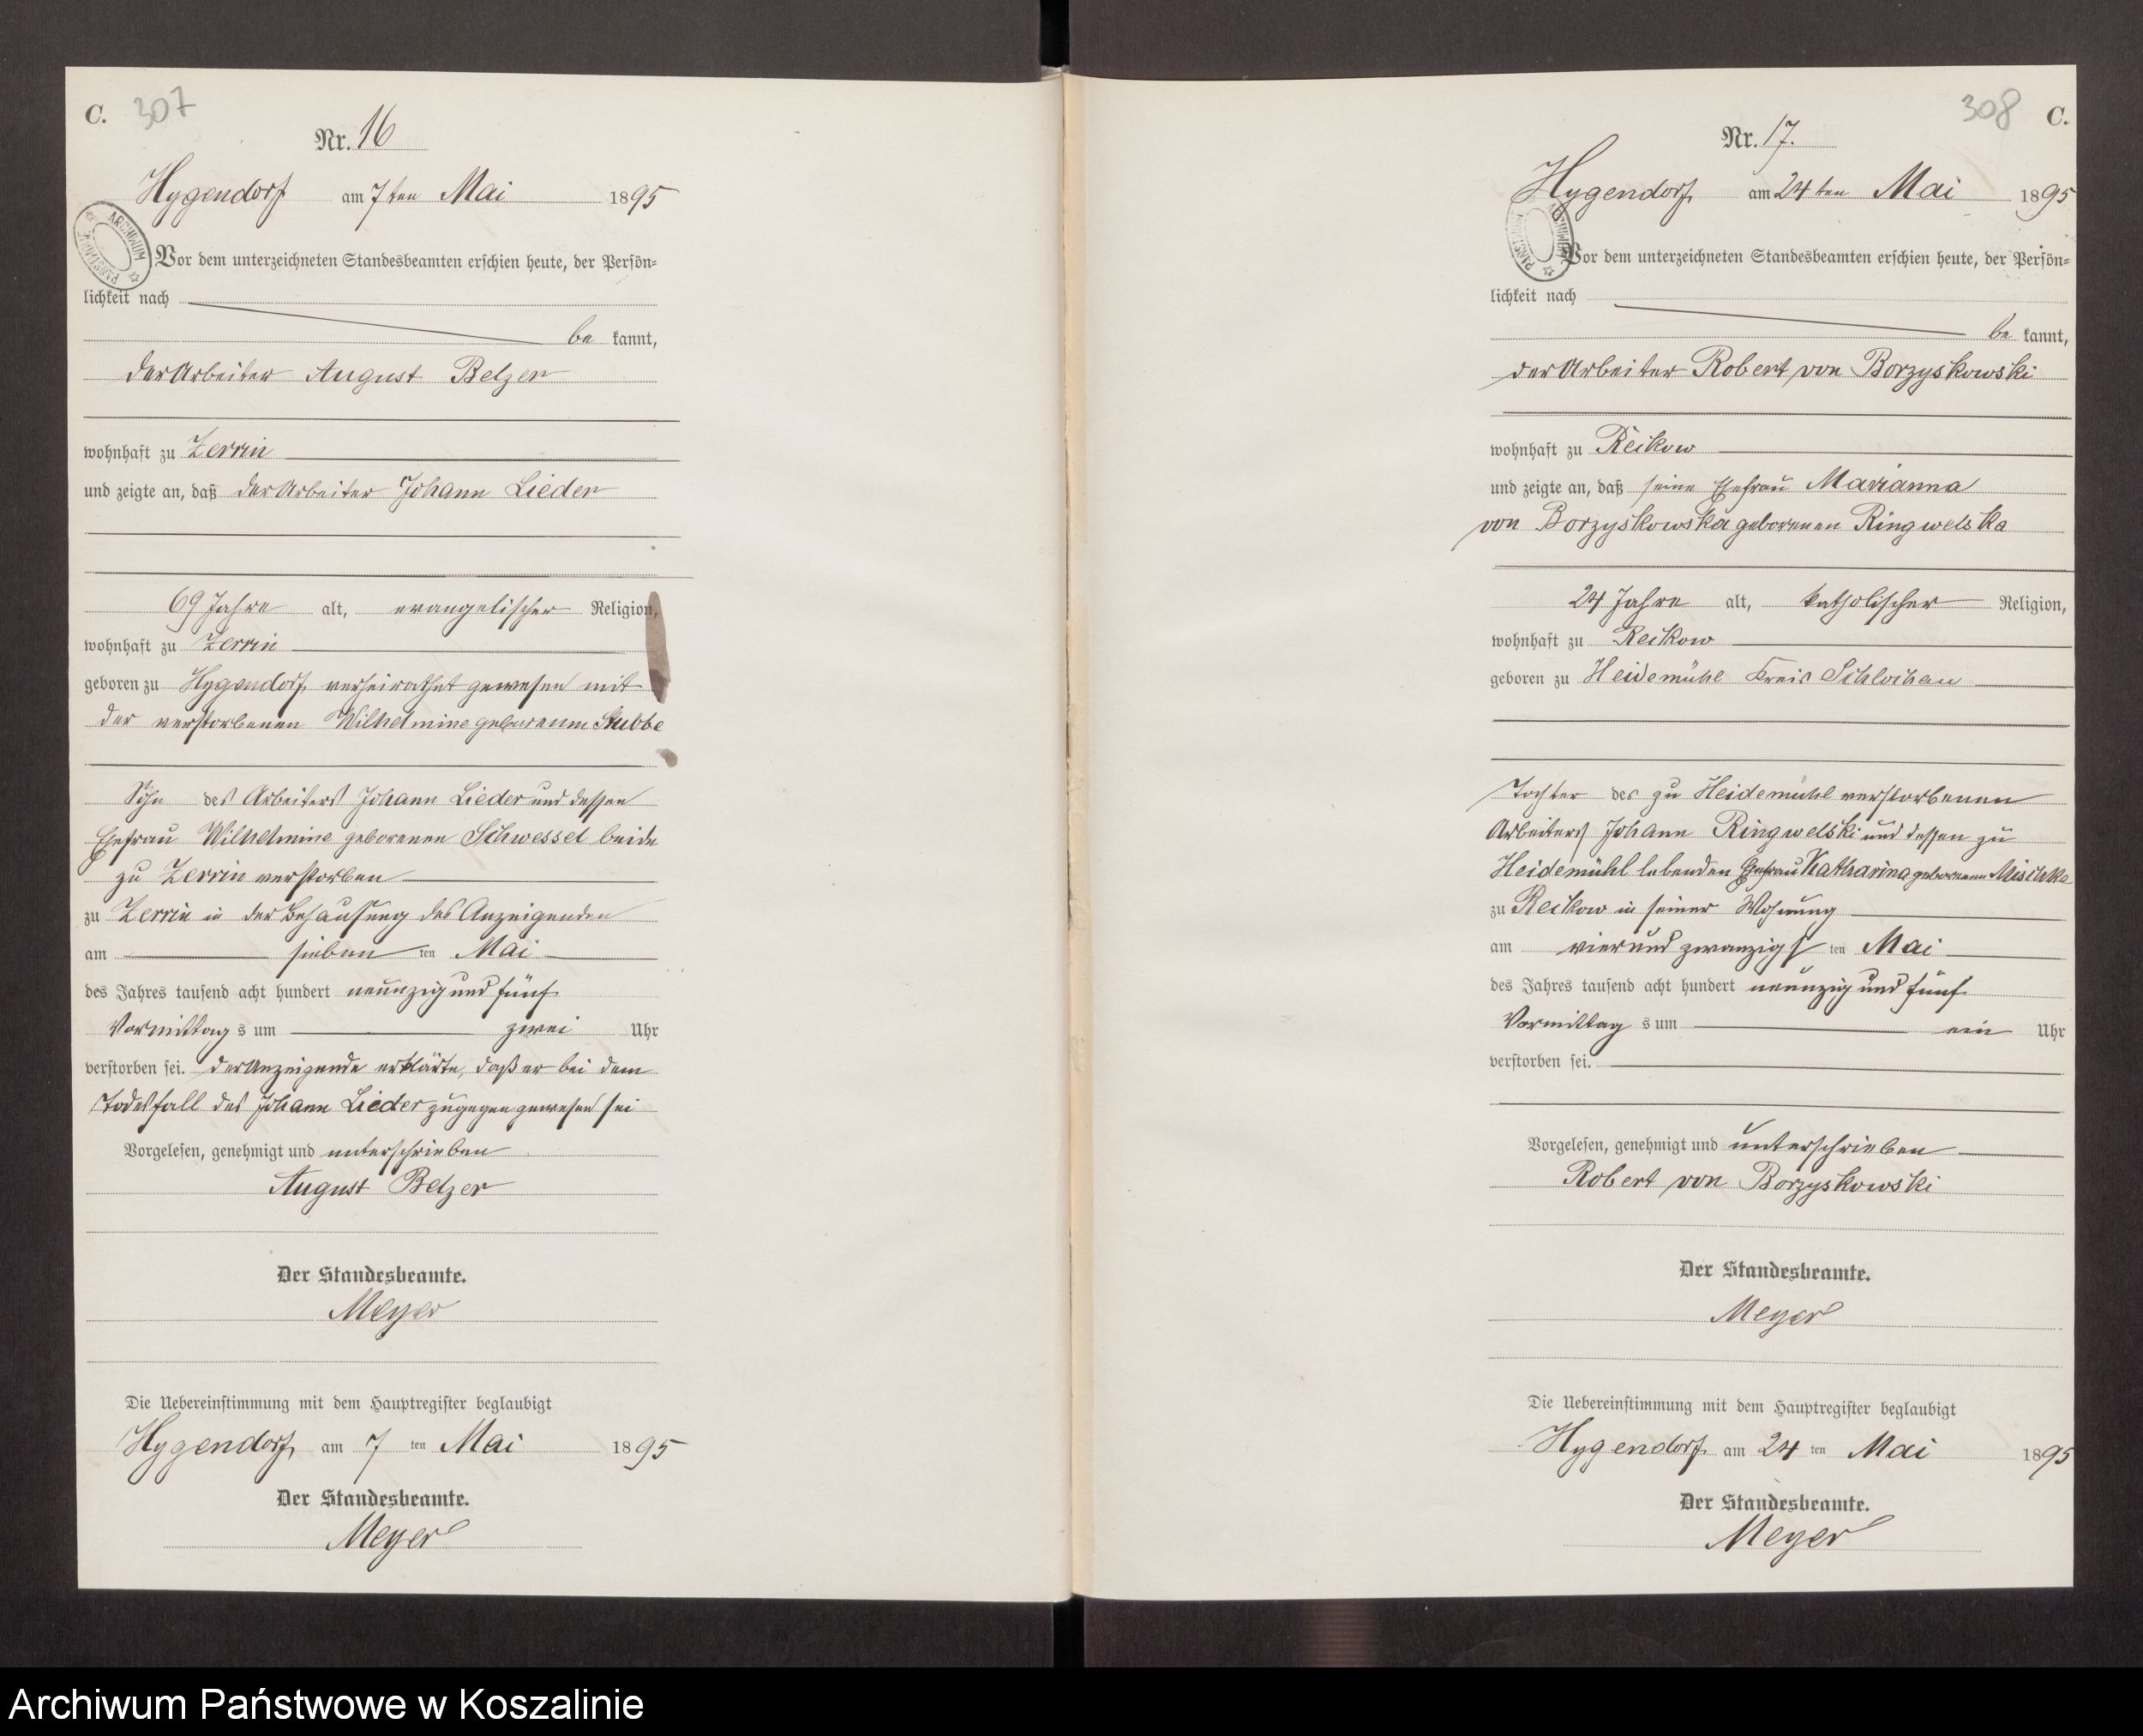 C. 307
Nr. 16
Hygendorf am 7ten Mai 1895
Vor dem unterzeichneten Standesbeamten erschien heute, der Persön=
lichkeit nach
be kannt,
der Arbeiter August Belzer
wohnhaft zu Zerrin
und zeigte an, daß der Arbeiter Johann Lieder
69 Jahre alt, evangelischer Religion,
wohnhaft zu Zerrin
geboren zu Hygendorf verheirathet gewesen mit
der verstorbenen Wilhelmine geborenen Stubbe
Sohn des Arbeiters Johann Lieder und dessen
Ehefrau Wilhelmine geborenen Schwessel beide
zu Zerrin verstorben
zu Zerrin in der Behausung des Anzeigenden
am sieben ten Mai
des Jahres tausend acht hundert neunzig und fünf
Vormittag s um zwei Uhr
verstorben sei. der Anzeigende erklärte, daß er bei dem
Todesfall des Johann Lieder zugegen gewesen sei
Vorgelesen, genehmigt und unterschrieben
August Belzer
Der Standesbeamte.
Meyer
Die Uebereinstimmung mit dem Hauptregister beglaubigt
Hygendorf, am 7 ten Mai 1895
Der Standesbeamte.
Meyer
308 C.
Nr. 17.
Hygendorf, am 24 ten Mai 1895
Vor dem unterzeichneten Standesbeamten erschien heute, der Persön=
lichkeit nach
be kannt,
der Arbeiter Robert von Borzyskowski
wohnhaft zu Reikow
und zeigte an, daß seine Ehefrau Marianna
von Borzyskowska geborenen Ringwelska
24 Jahre alt, katholischer Religion,
wohnhaft zu Reikow
geboren zu Heidemühl Kreis Schlochau
Tochter des zu Heidemühl verstorbenen
Arbeiters Johann Ringwelski und dessen zu
Heidemühl lebenden Ehefrau Katharina geborenen Mischke
zu Reikow in seiner Wohnung
am vierundzwanzigs ten Mai
des Jahres tausend acht hundert neunzig und fünf
Vormittag s um ein Uhr
verstorben sei.
Vorgelesen, genehmigt und unterschrieben
Robert von Borzyskowski
Der Standesbeamte.
Meyer
Die Uebereinstimmung mit dem Hauptregister beglaubigt
Hygendorf am 24 ten Mai 1895
Der Standesbeamte.
Meyer
Archiwum Państwowe w Koszalinie